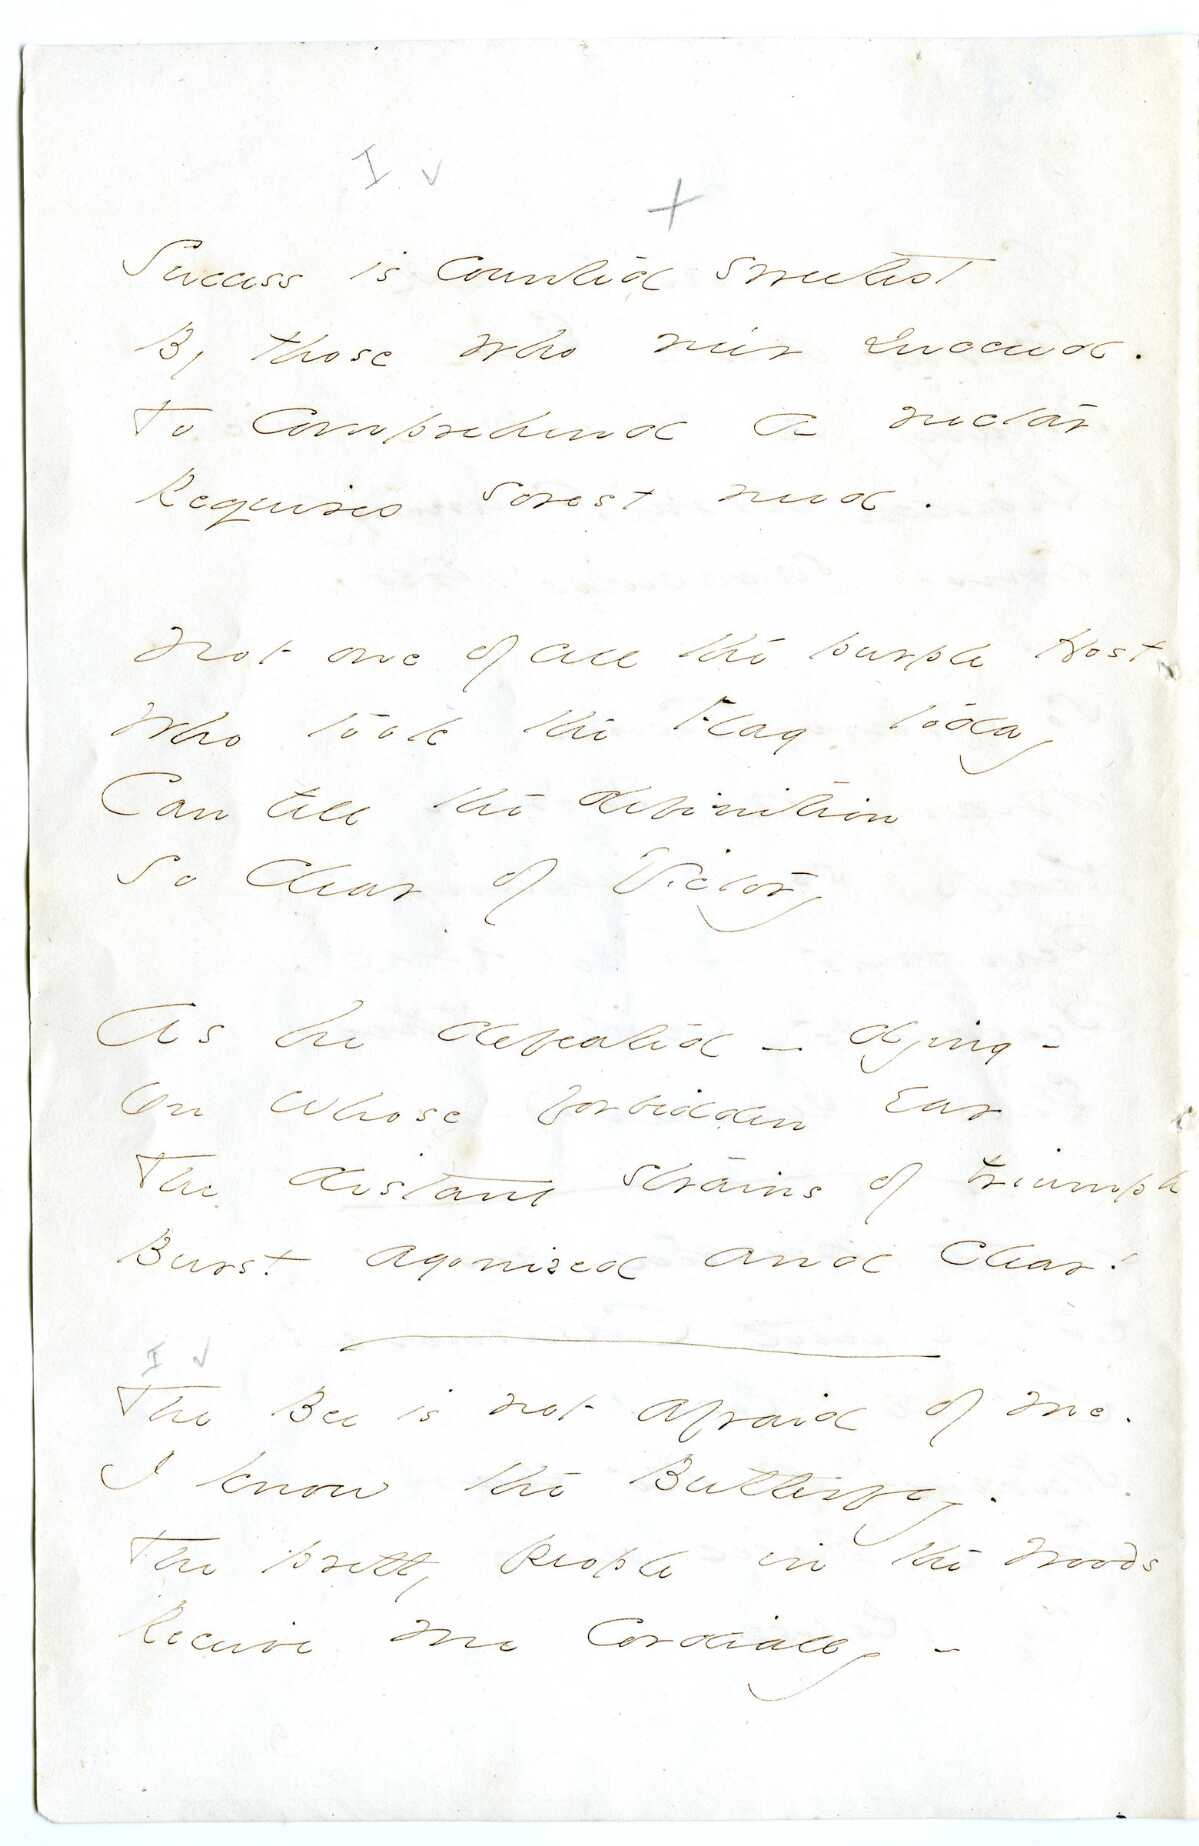 I ✓
+
Success is counted sweetest
By those who ne'er succeed.
To Comprehend a nectar
Requires sorest need.
Not one of all the purple Host
Who took the Flag today
Can tell the definition
So Clear of Victory
As he defeated – dying –
On whose forbidden ear
The distant strains of triumph
Burst agonized and Clear!
I ✓
The Bee is not afraid of me.
I know the Butterfly.
The pretty people in the Woods
Receive me Cordially –